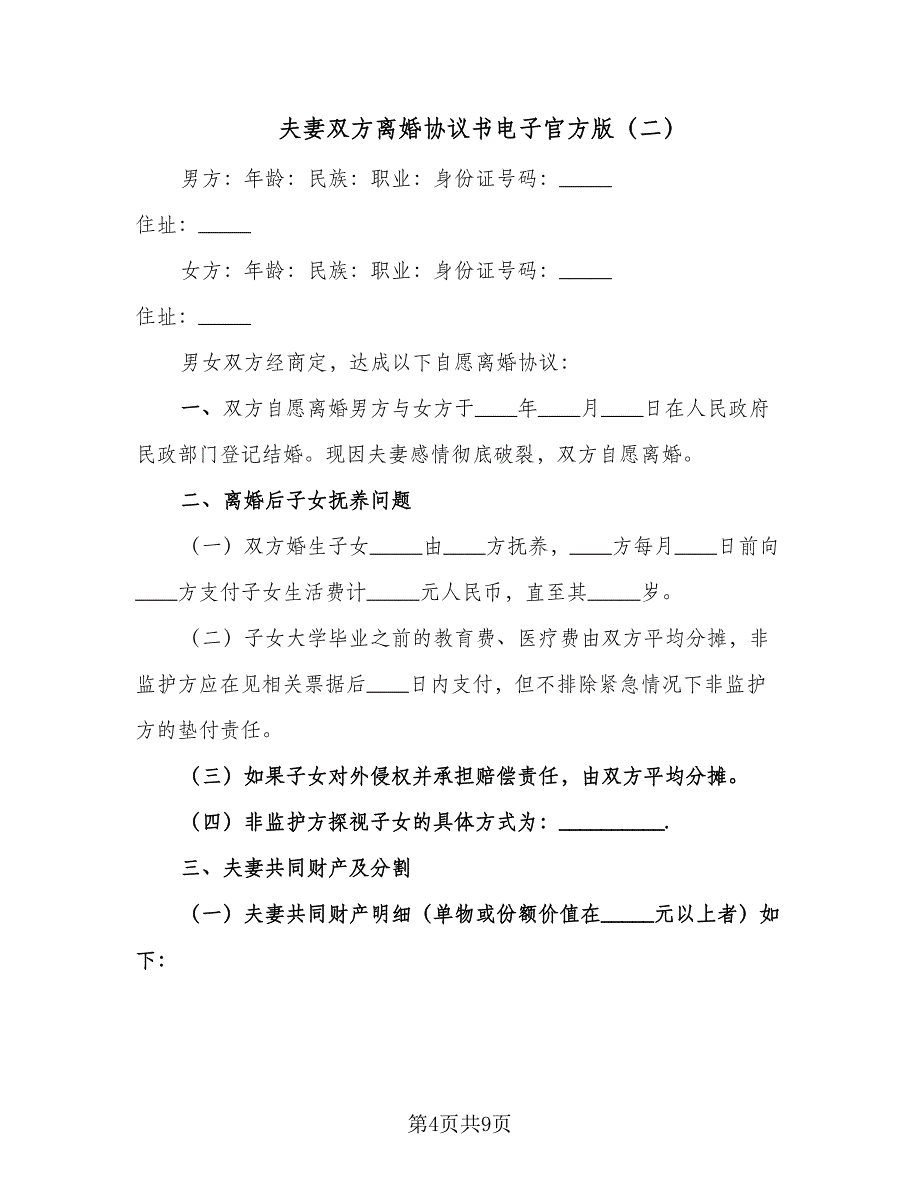 夫妻双方离婚协议书电子官方版（二）
男方：年龄：民族：职业：身份证号码：_____
住址：_____
女方：年龄：民族：职业：身份证号码：_____
住址：_____
男女双方经商定，达成以下自愿离婚协议：
一、双方自愿离婚男方与女方于____年____月____日在人民政府
民政部门登记结婚。现因夫妻感情彻底破裂，双方自愿离婚。
二、离婚后子女抚养问题
（一）双方婚生子女_____由____方抚养，____方每月____日前向
____方支付子女生活费计_____元人民币，直至其_____岁。
（二）子女大学毕业之前的教育费、医疗费由双方平均分摊，非
监护方应在见相关票据后____日内支付，但不排除紧急情况下非监护
方的垫付责任。
（三）如果子女对外侵权并承担赔偿责任，由双方平均分摊。
（四）非监护方探视子女的具体方式为：__________.
三、夫妻共同财产及分割
（一）夫妻共同财产明细（单物或份额价值在_____元以上者）如
下：
第4页共9页